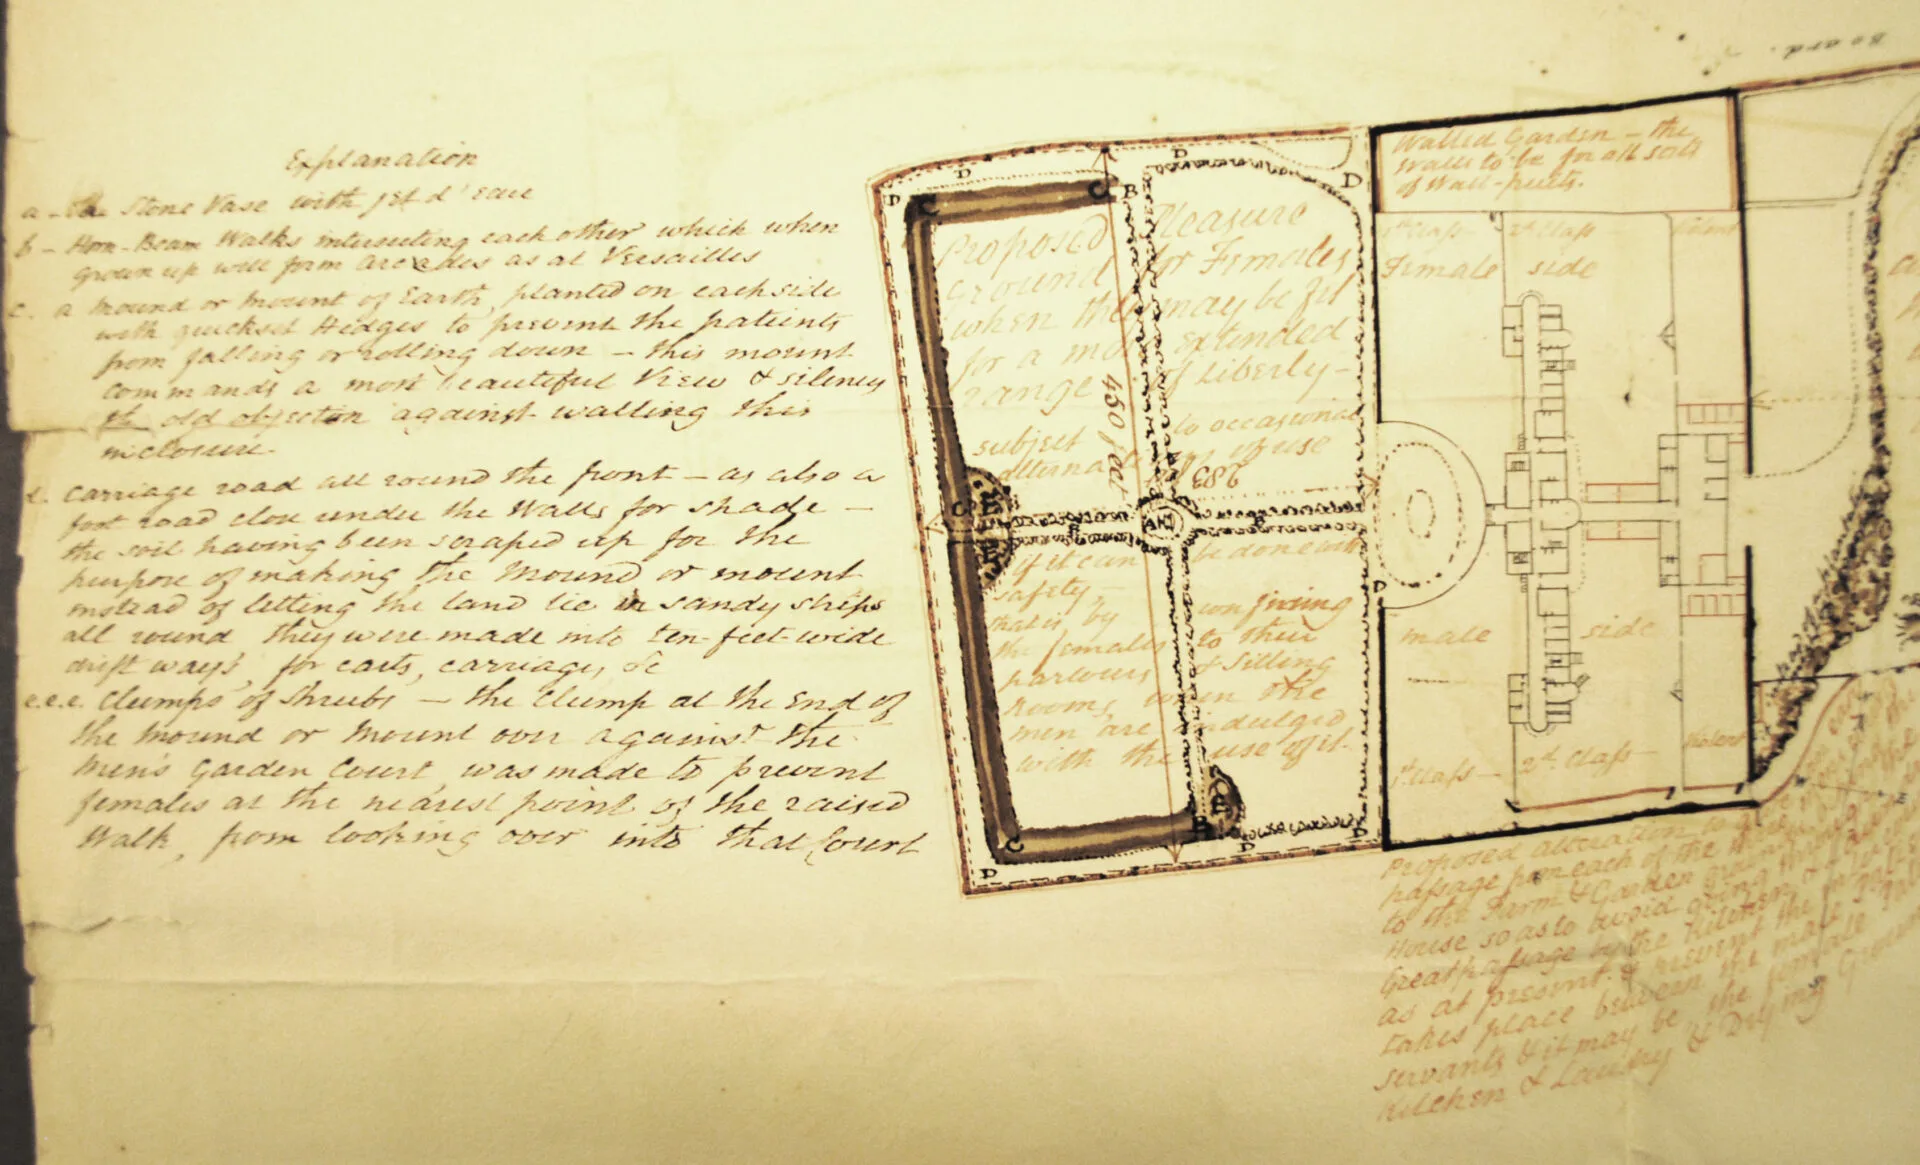 Explanation
a - a Stone Vase with jet d'eau
b - Horn-Beam Walks intersecting each other which when
grown up will form arcades as at Versailles
c. a mound or mount of Earth, planted on each side
with quickset Hedges to prevent the patients
from falling or rolling down - this mount
commands a most beautiful View & silences
the old objection against walling this
inclosure.
d. Carriage road all round the front - as also a
foot road close under the Walls for shade -
the soil having been scraped up for the
purpose of making the Mound or mount
instead of letting the land lie in sandy strips
all round they were made into ten-feet-wide
drift ways, for carts, carriages, &c
e.e.e. Clumps of Shrubs - the Clump at the End of
the Mound or Mount over against the
Men's Garden Court, was made to prevent
females at the nearest point of the raised
Walk, from looking over into that Court
Board.
Walled Garden - the
Walls to be for all sorts
of Wall-fruits.
D
D
D
D
C
C
B
Proposed Pleasure
Ground for Females
when they may be fit
for a more extended
range of Liberty -
subject to occasional
of use
450 feet
283
C E
B
B
if it can be done with
safety, -
that is by confining
the females to their
parlours & Sitting
rooms, when the
men are indulged
with the use of it.
C
B
E
D
D
D
D
1st Class - 2d Class -
Female side
male side
1st Class - 2d Class - Violent
Proposed alteration
passage from each of the
to the Farm & Garden ground
House so as to avoid going
Great passage by the Kitchen
as at present. & prevent the
takes place between the male
servants & it may be the female
Kitchen & Laundry & Drying Ground